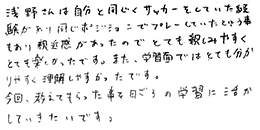 浅野さんは自分と同じくサッカーをしていた経
験があり同じポジションでプレーしていたという事
もあり親近感があったのでとても親しみやすく
とても楽しかったです。また、学習面ではとても分か
りやすく理解しやすかったです。
今回、教えてもらった事を日ごろの学習に活か
していきたいです。